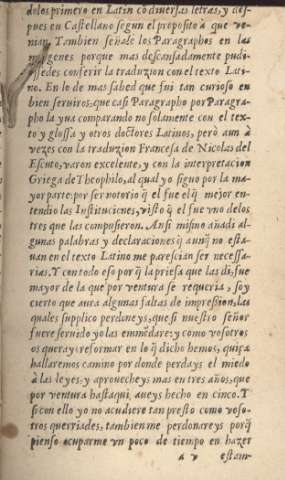 dolos primero en Latin cõ diuersas letras, y des-
pues en Castellano segun el proposito à que ve-
nian. Tambien señale los Paragraphos en las
margenes porque mas descansadamente pudi-
essedes conferir la traduzion con el texto Lati-
no. En lo de mas sabed que fui tan curioso en
bien seruiros, que casi Paragrapho por Paragra-
pho la yua comparando no solamente con el tex-
to y glossa y otros doctores Latinos, però aun à
vezes con la traduzion Francesa de Nicolas del
Escuto, varon excelente, y con la interpretacion
Griega de Theophilo, al qual yo siguo por la ma-
yor parte: por ser notorio q̃ el fue el q̃ mejor en-
tendio las Instituciones, visto q̃ el fue vno delos
tres que las compusieron. Ansi mismo añadi al-
gunas palabras y declaraciones q̃ aunq̃ no esta-
uan en el texto Latino me parescian ser necessa-
rias. Y con todo eso por q̃ la priesa que las di, fue
mayor de la que por ventura se requeria, soy
cierto que aura algunas faltas de impresion, las
quales supplico perdoneys, que si nuestro señor
fuere seruido yo las enmẽdare: y como vosotros
os querays reformar en lo q̃ dicho hemos, quiça
hallaremos camino por donde perdays el miedo
à las leyes: y aprouecheys mas en tres años, que
por ventura hasta qui, aueys hecho en cinco. Y
si con ello yo no acudiere tan presto como voso-
tros querriades, tambien me perdonareys porq̃
pienso ocuparme vn poco de tiempo en hazer
a v estam-